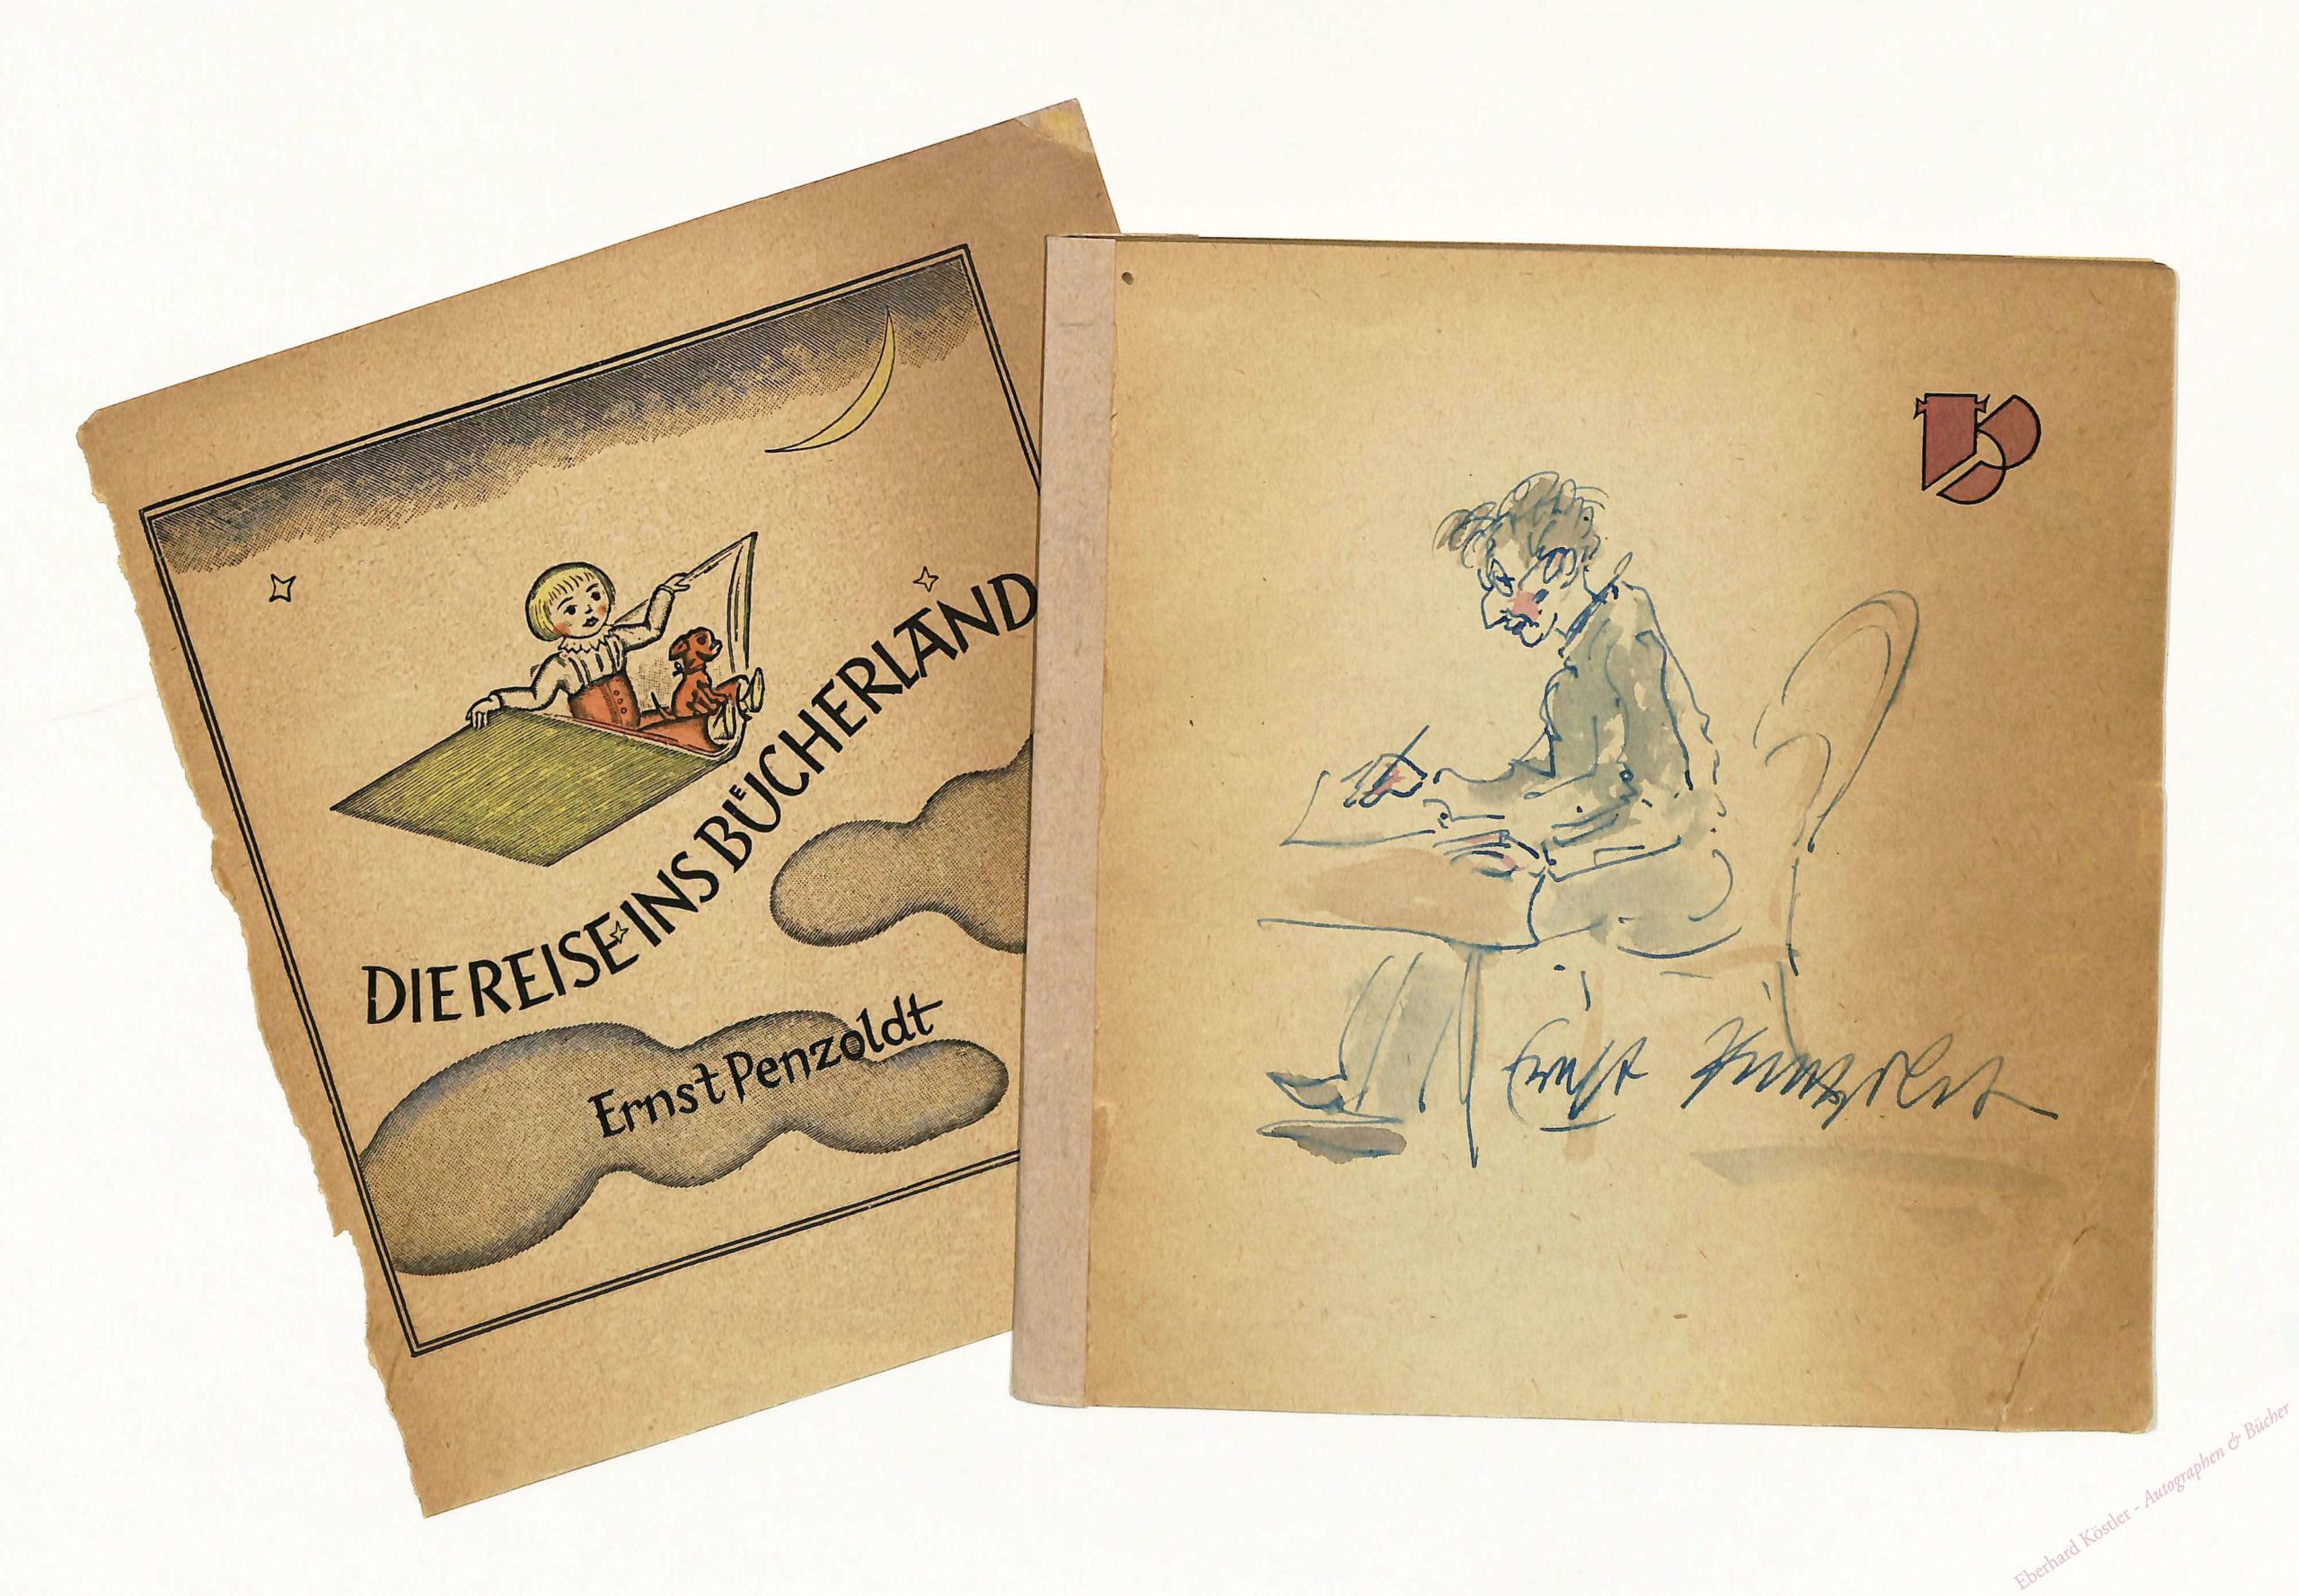 DIE REISE INS BUͤCHERLAND
Ernst Penzoldt
Ernst Penzoldt
Eberhard Köstler - Autographen & Bücher